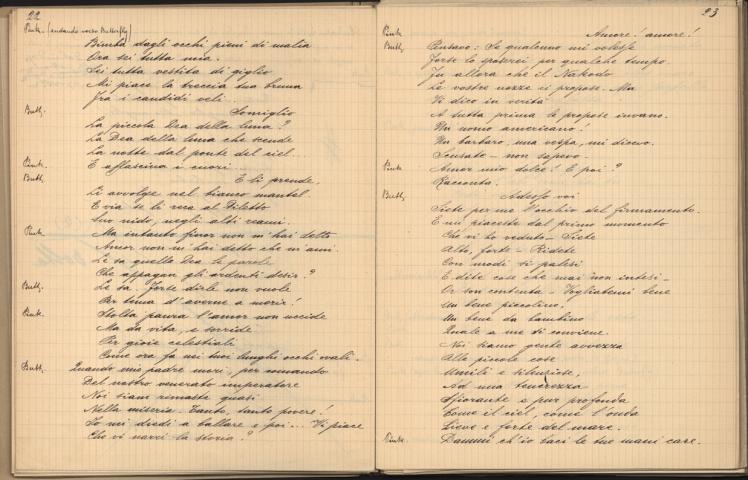 22
Pink. (andando verso Butterfly)
Bimba dagli occhi pieni di malia
Ora sei tutta mia.
Sei tutta vestita di giglio
Mi piace la treccia tua bruna
Fra i candidi veli...
Butt. Somiglio
La piccola Dea della luna?
La Dea della luna che scende
La notte dal ponte del ciel...
Pink. E affascina i cuori...
Butt. E li prende,
Li avvolge nel bianco mantel.
E via se li reca al Diletto
Suo nido, negli alti reami.
Pink. Ma intanto finor non m'hai detto
Amor non m'hai detto che m'ami.
Le sa quella Dea le parole
Che appagan gli ardenti desir?
Butt. Le sa. Forse dirle non vuole
Per tema d'averne a morir!
Pink. Stolta paura l'amor non uccide
Ma dà vita, e sorride
Per gioie celestiali
Come ora fa nei tuoi lunghi occhi ovali.
Butt. Quando mio padre morì, per comando
Del nostro venerato imperatore
Noi siam rimaste quasi
Nella miseria. Tanto, tanto povere!
Io mi diedi a ballare e poi... Vi piace
Che vi narri la storia?
23
Pink. Amore! amore!
Butt. Pensavo: Se qualcuno mi volesse
Forse lo sposerei per qualche tempo.
Fu allora che il Nakodo
Le vostre nozze ci propose. Ma
Vi dico in verità
A tutta prima le propose invano.
Un uomo americano!
Un barbaro, una vespa, mi dicevo.
Scusate - non sapevo.
Pink. Amor mio dolce! E poi?
Racconta.
Butt. Adesso voi
Siete per me l'occhio del firmamento.
E mi piaceste dal primo momento
Che vi ho veduto - Siete
Alto, forte - Ridete
Con modi sì palesi
E dite cose che mai non intesi -
Or son contenta - Vogliatemi bene
Un bene piccolino,
Un bene da bambino
Quale a me si conviene.
Noi siamo gente avvezza
Alle piccole cose
Umili e silenziose,
Ad una tenerezza
Sfiorante e pur profonda
Come il ciel, come l'onda
Lieve e forte del mare.
Pink. Dammi ch'io baci le tue mani care.